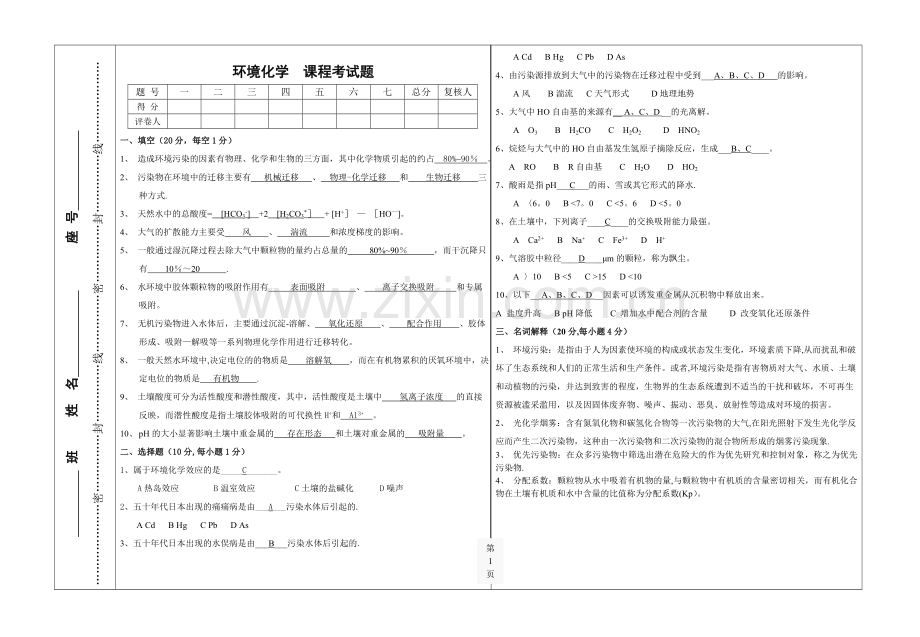 环境化学 课程考试题
题 号 一 二 三 四 五 六 七 总分 复核人
得 分
评卷人
一、填空(20分,每空1分)
1、 造成环境污染的因素有物理、化学和生物的三方面,其中化学物质引起的约占_80%-90%_。
2、 污染物在环境中的迁移主要有 机械迁移 、 物理-化学迁移 和 生物迁移 三
种方式.
3、 天然水中的总酸度= [HCO₃⁻] +2 [H₂CO₃*] + [H⁺] — [HO⁻]。
4、 大气的扩散能力主要受 风 、 湍流 和浓度梯度的影响。
5、 一般通过湿沉降过程去除大气中颗粒物的量约占总量的 80%~90% ,而干沉降只
有 10%~20 .
6、 水环境中胶体颗粒物的吸附作用有 表面吸附 、 离子交换吸附 和专属
吸附。
7、 无机污染物进入水体后,主要通过沉淀-溶解、 氧化还原 、 配合作用 、胶体
形成、吸附—解吸等一系列物理化学作用进行迁移转化。
8、 一般天然水环境中,决定电位的的物质是 溶解氧 ,而在有机物累积的厌氧环境中,决
定电位的物质是 有机物 .
9、 土壤酸度可分为活性酸度和潜性酸度,其中,活性酸度是土壤中 氢离子浓度 的直接
反映,而潜性酸度是指土壤胶体吸附的可代换性H⁺和 Al³⁺ 。
10、 pH的大小显著影响土壤中重金属的 存在形态 和土壤对重金属的 吸附量 。
二、选择题(10分,每小题1分)
1、属于环境化学效应的是 C 。
A热岛效应 B温室效应 C土壤的盐碱化 D噪声
2、五十年代日本出现的痛痛病是由 A 污染水体后引起的.
A Cd B Hg C Pb D As
3、五十年代日本出现的水俣病是由 B 污染水体后引起的.
A Cd B Hg C Pb D As
4、由污染源排放到大气中的污染物在迁移过程中受到 A、B、C、D 的影响。
A风 B湍流 C天气形式 D地理地势
5、大气中HO自由基的来源有 A、C、D 的光离解。
A O₃ B H₂CO C H₂O₂ D HNO₂
6、烷烃与大气中的HO自由基发生氢原子摘除反应,生成 B、C 。
A RO B R自由基 C H₂O D HO₂
7、酸雨是指pH C 的雨、雪或其它形式的降水.
A 〈6。0 B <7。0 C <5。6 D <5。0
8、在土壤中,下列离子 C 的交换吸附能力最强。
A Ca²⁺ B Na⁺ C Fe³⁺ D H⁺
9、气溶胶中粒径 D μm的颗粒,称为飘尘。
A 〉10 B <5 C >15 D <10
10、以下 A、B、C、D 因素可以诱发重金属从沉积物中释放出来。
A 盐度升高 B pH降低 C 增加水中配合剂的含量 D 改变氧化还原条件
三、名词解释(20分,每小题4分)
1、 环境污染:是指由于人为因素使环境的构成或状态发生变化,环境素质下降,从而扰乱和破
坏了生态系统和人们的正常生活和生产条件。或者,环境污染是指有害物质对大气、水质、土壤
和动植物的污染,并达到致害的程度,生物界的生态系统遭到不适当的干扰和破坏,不可再生
资源被滥采滥用,以及因固体废弃物、噪声、振动、恶臭、放射性等造成对环境的损害。
2、 光化学烟雾:含有氮氧化物和碳氢化合物等一次污染物的大气,在阳光照射下发生光化学反
应而产生二次污染物,这种由一次污染物和二次污染物的混合物所形成的烟雾污染现象.
3、 优先污染物:在众多污染物中筛选出潜在危险大的作为优先研究和控制对象,称之为优先
污染物.
4、 分配系数:颗粒物从水中吸着有机物的量,与颗粒物中有机质的含量密切相关,而有机化合
物在土壤有机质和水中含量的比值称为分配系数(Kp)。
座 号
姓 名
班
密 封 线 密 封 线
www.zixin.com.cn
第
1
页